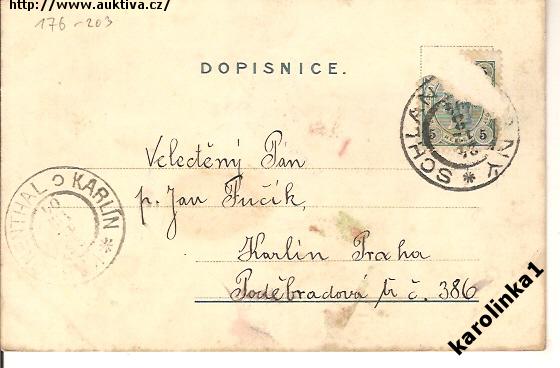 http://www.auktiva.cz/
176-203
DOPISNICE.
5 5
SCHLAN
NÝ *
Veledtěný Pán
p. Jan Fučík,
Karlín Praha
Poděbradová tř č. 386
NTHAL
KARLÍN *
karolinka1